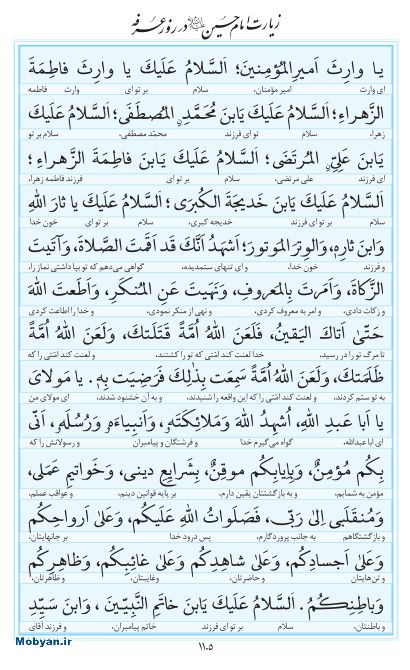 زیارت امام حسین علیه السلام در روز عرفه
یا وارِثَ اَمیرِالمُؤمِنینَ؛ اَلسَّلامُ عَلَیكَ یا وارِثَ فاطِمَةَ
ای وارث امیر مؤمنان، سلام بر تو ای وارث فاطمه
الزَّهراءِ؛ اَلسَّلامُ عَلَیكَ یَابنَ مُحَمَّدٍ المُصطَفىٰ؛ اَلسَّلامُ عَلَیكَ
زهرا، سلام بر تو ای فرزند محمّد مصطفی، سلام بر تو
یَابنَ عَلِیٍّ المُرتَضىٰ؛ اَلسَّلامُ عَلَیكَ یَابنَ فاطِمَةَ الزَّهراءِ؛
ای فرزند علی مرتضی، سلام بر تو ای فرزند فاطمه زهرا،
اَلسَّلامُ عَلَیكَ یَابنَ خَدیجَةَ الكُبرىٰ؛ اَلسَّلامُ عَلَیكَ یا ثارَ اللهِ
سلام بر تو ای فرزند خدیجه کبری، سلام بر تو ای خون خدا
وَابنَ ثارِهِ، وَالوِترَ المَوتورَ؛ اَشهَدُ اَنَّكَ قَد اَقَمتَ الصَّلاةَ، وَآتَیتَ
و فرزند خون خدا، و ای تنهای ستمدیده، گواهی می‌دهم که تو بپا داشتی نماز را،
الزَّكاةَ، وَاَمَرتَ بِالمَعروفِ، وَنَهَیتَ عَنِ المُنكَرِ، وَاَطَعتَ اللهَ
و زکات دادی، و امر به معروف کردی، و نهی از منکر نمودی، و خدا را اطاعت کردی
حَتّىٰ اَتاكَ الیَقینُ، فَلَعَنَ اللهُ اُمَّةً قَتَلَتكَ، وَلَعَنَ اللهُ اُمَّةً
تا مرگ تو را در رسید، خدا لعنت کند امّتی که تو را کشتند، و لعنت کند امّتی را که
ظَلَمَتكَ، وَلَعَنَ اللهُ اُمَّةً سَمِعَت بِذٰلِكَ فَرَضِیَت بِهِ. یا مَولایَ
به تو ستم کردند، و لعنت کند امّتی را که این واقعه را شنیدند، و به آن خشنود شدند. ای مولای من
یا اَبا عَبدِ اللهِ، اُشهِدُ اللهَ وَمَلائِكَتَهُ، وَاَنبِیاءَهُ وَرُسُلَهُ، اَنّی
ای ابا عبدالله، گواه می‌گیرم خدا و فرشتگان و پیامبران و رسولانش را که
بِكُم مُؤمِنٌ، وَبِاِیابِكُم موقِنٌ، بِشَرایِعِ دینی، وَخَواتیمِ عَمَلی،
مؤمن به شمایم، و به بازگشتتان یقین دارم، بر پایه قوانین دینم، و عواقب عملم،
وَمُنقَلَبی اِلىٰ رَبّی، فَصَلَواتُ اللهِ عَلَیكُم، وَعَلىٰ اَرواحِكُم
و بازگشتگاهم به جانب پروردگارم، پس درود خدا بر جانهایتان،
وَعَلىٰ اَجسادِكُم، وَعَلىٰ شاهِدِكُم وَعَلىٰ غائِبِكُم، وَظاهِرِكُم
و تن‌هایتان و حاضرتان، وغایبتان، و ظاهرتان،
وَباطِنِكُم. اَلسَّلامُ عَلَیكَ یَابنَ خاتَمِ النَّبِیّینَ، وَابنَ سَیِّدِ
و باطنتان، سلام بر تو ای فرزند خاتم پیامبران، و فرزند آقای
۱۱۰۵
Mobyan.ir